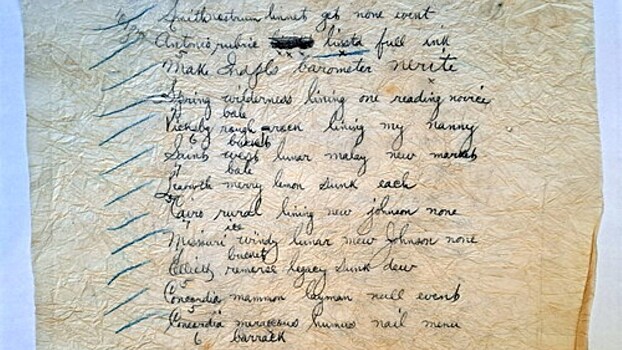 Smith nostrum linnet get none event
Antonio rubric lissa full ink
Make Indpls barometer nerite
Spring wilderness lining one reading novice
bale
Vicksbg rough rack lining my nanny
bucket
Saints west lunar malay new market
bale
merry lemon sunk each
Cairo rural lining new johnson none
ice
Missouri windy lunar new Johnson none
bucket
memorise legacy sunk dew
Concordia mammon layman null events
Concordia meraccous humus nail menu
6 barrack